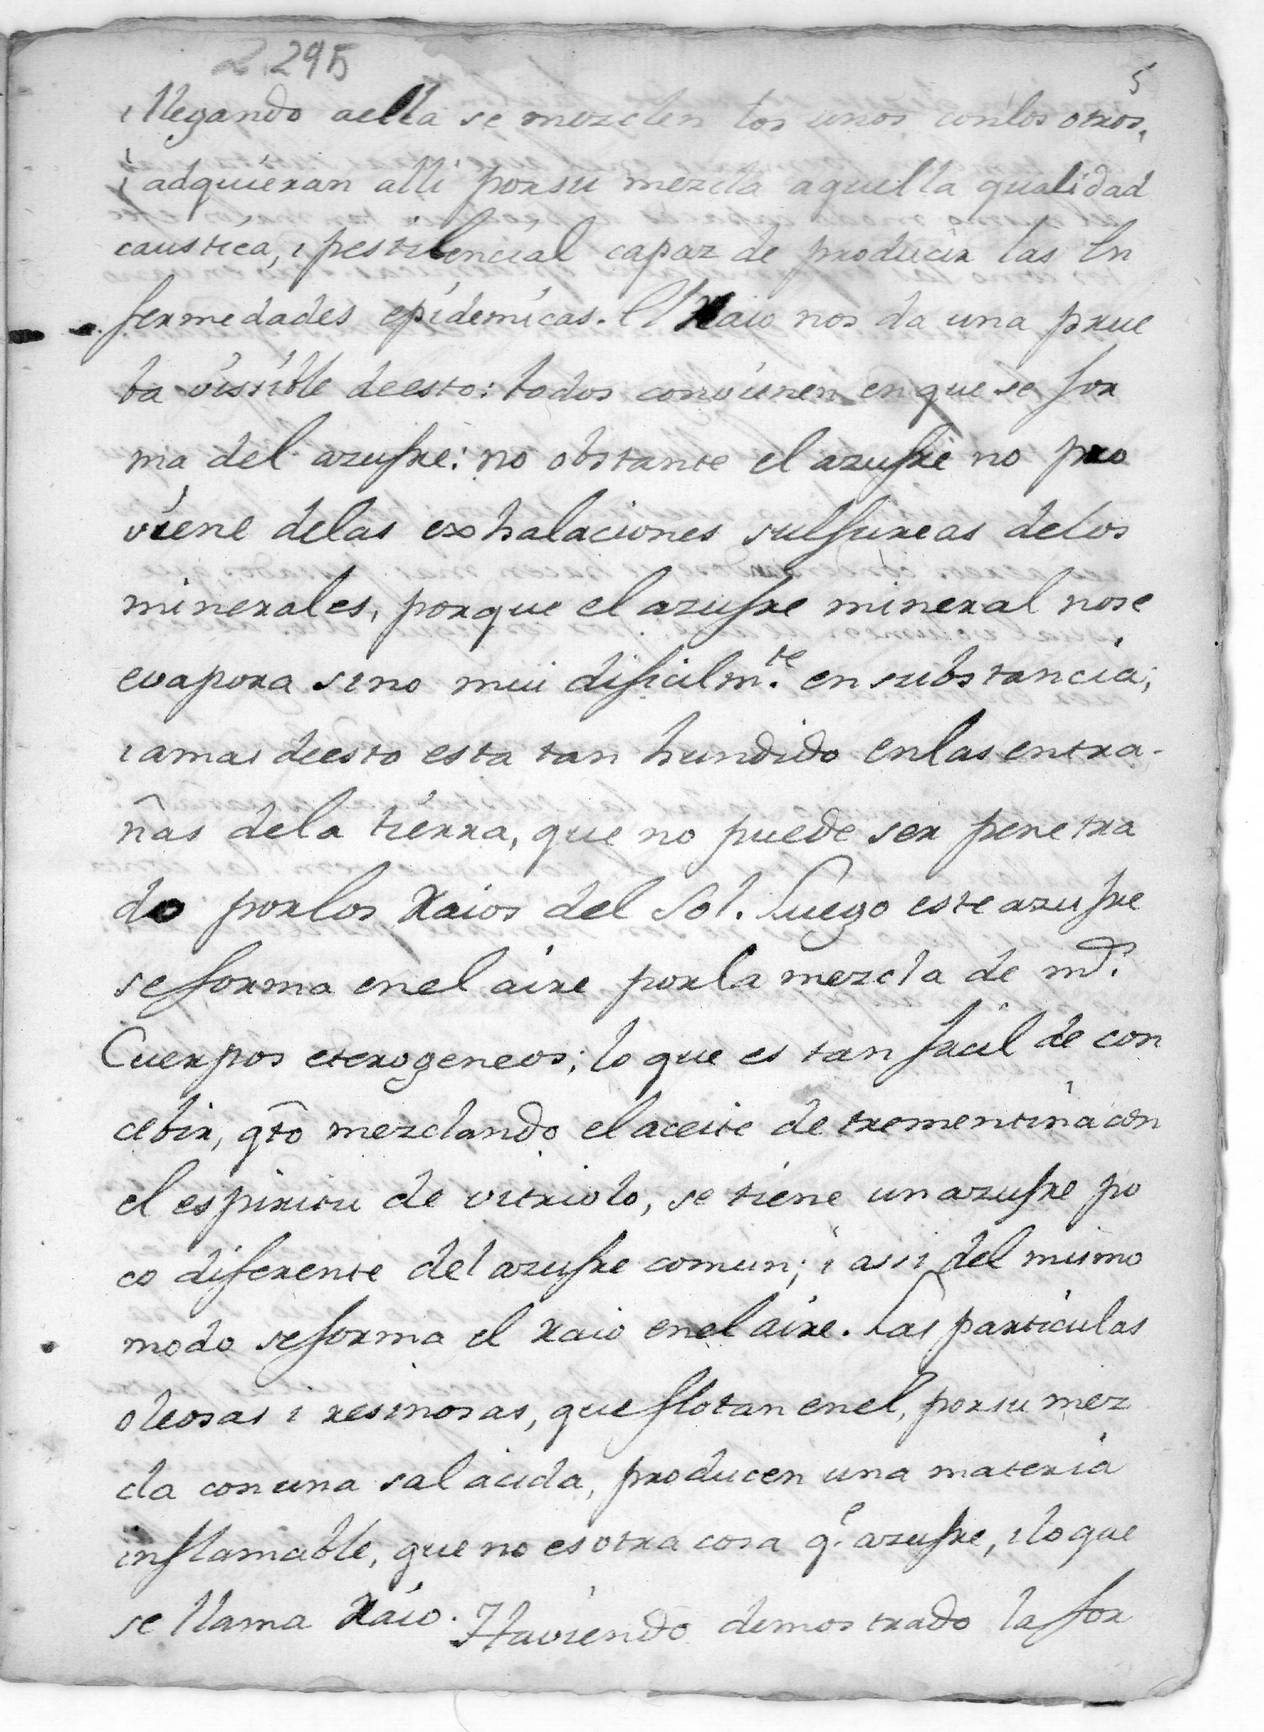 2.295
5
i llegando aella se mezclen los unos conlos otros,
i adquieran alli porsu mezcla aquella qualidad
caustica, i pestilencial capaz de producir las En
fermedades epidemicas. El Raio nos da una prue
ba visible deesto: todos convienen en que se for
ma del azufre: no obstante el azufre no pro
viene delas exhalaciones sulfureas delos
minerales, porque el azufre mineral nose
evapora sino mui dificilm.te en substancia;
i amas deesto esta tan hundido enlas entra-
ñas dela tierra, que no puede ser penetra
do porlos Raios del Sol. Luego este azufre
se forma enel aire porla mezcla de md.s
Cuerpos eterogeneos; lo que es tan facil de con
cebir, qto mezclando el aceite de trementina con
el espiritu de vitriolo, se tiene un azufre po
co diferente del azufre comun; i assi del mismo
modo se forma el raio enel aire. Las particulas
oleosas i resinosas, que flotan enel, porsu mez
cla con una sal acida, producen una materia
inflamable, que no es otra cosa q.e azufre, i lo que
se llama Raio. Haviendo demostrado la for